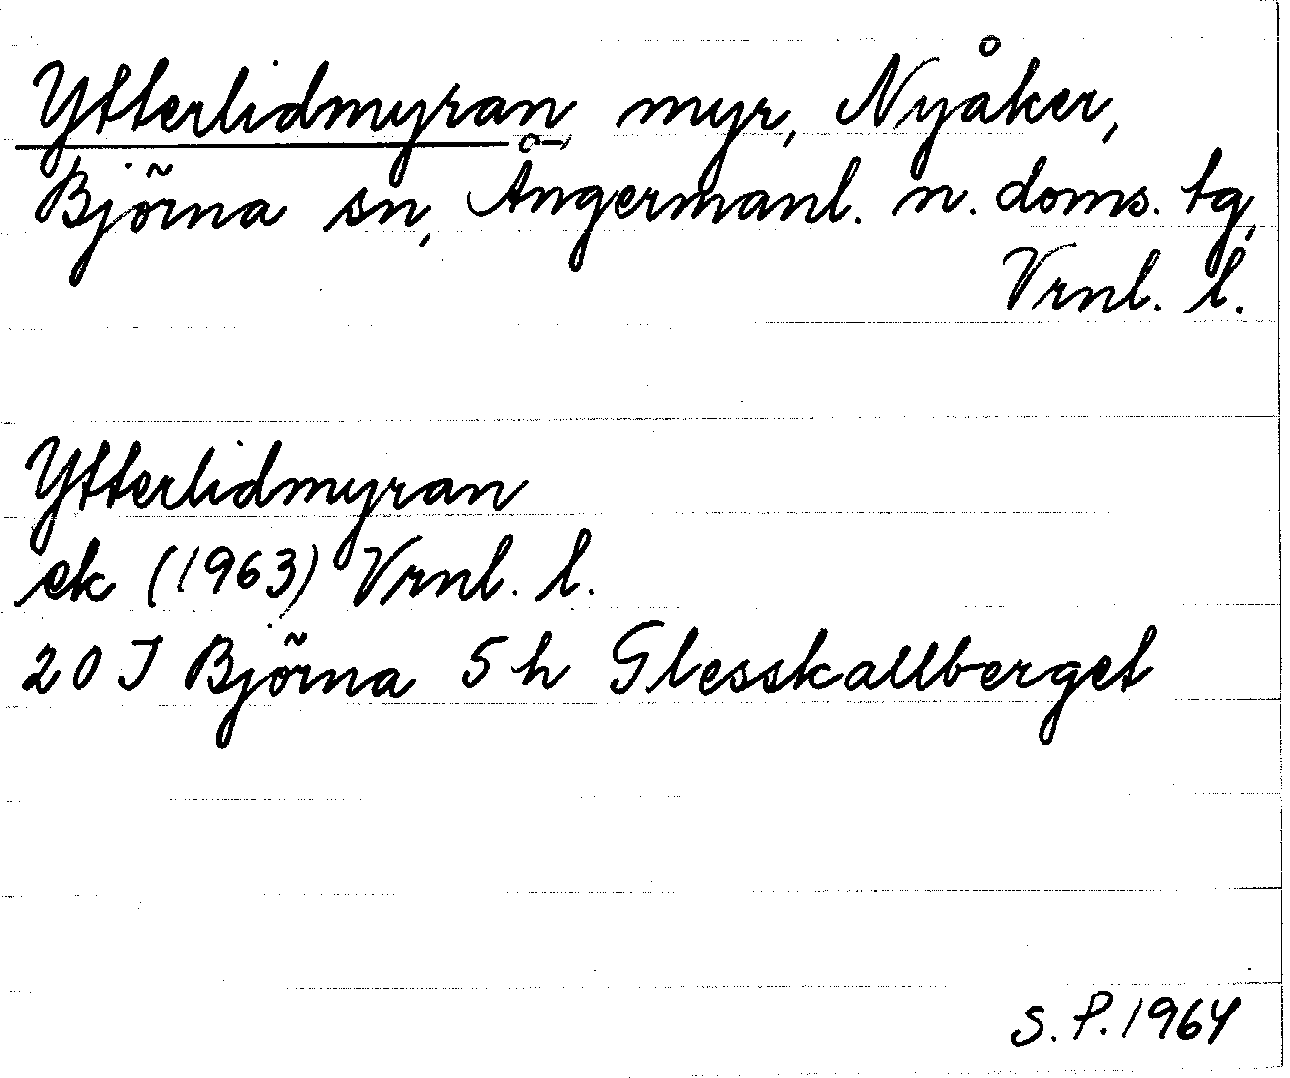 Ytterlidmyran, myr, Nyåker,
Björna sn, Ångermanl. n. doms. tg,
Vrnl. l.
Ytterlidmyran
ek (1963) Vrnl. l.
20 J Björna 5 h Glesskallberget
S. P. 1964